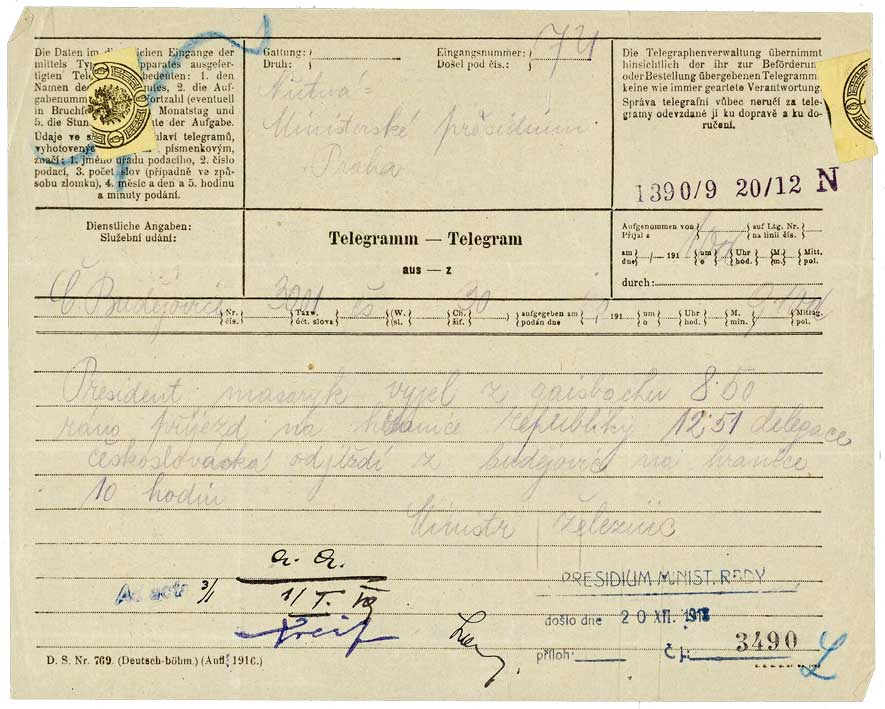 Die Daten im
lichen Eingange der
mittels
Apparates ausgefer-
tigten
bedeuten: 1. den
Namen
2. die Auf-
gabenumm
Wortzahl (eventuell
in Bruchfo
Monatstag und
5. die Stun
te der Aufgabe.
Údaje ve
hlaví telegramů,
vyhotoveny
písmenkovým,
značí: 1. jméno úřadu podacího, 2. číslo
podací, 3. počet slov (případně ve způ-
sobu zlomku), 4. měsíc a den a 5. hodinu
a minuty podání.
Gattung:
Druh:
Eingangsnummer:
Došel pod čís.:
74
Nutná
Ministerské präsidium
Praha
Die Telegraphenverwaltung übernimmt
hinsichtlich der ihr zur Beförderung
oder Bestellung übergebenen Telegramm
keine wie immer geartete Verantwortung.
Správa telegrafní vůbec neručí za tele-
gramy odevzdané jí ku dopravě a ku do-
ručení.
1390/9 20/12 N
Dienstliche Angaben:
Služební udání:
Telegramm — Telegram
aus — z
Aufgenommen von auf Ltg. Nr.
Přijal z na linii čís.
am / 191 um Uhr M. Mitt.
dne o hod. m. pol.
durch:
Č Budějovic 30
Nr. Taxw. (W. Ch. ) aufgegeben am / 191 um Uhr M. Mittag.
čís. účt. slova (sl. šif. ) podán dne o hod. min. pol.
President masaryk vyjel z gaisbachu 8.50
ráno příjezd na hranice republiky 12.51 delegace
československá odjíždí z budějovic na hranice
10 hodin
Ministr železnic
a. a.
Ad acta 3/1
1/I. 19
PRESIDIUM MINIST. RADY
došlo dne 20 XII. 1918
příloh: č. j. 3490
D. S. Nr. 769. (Deutsch-böhm.) (Aufl. 1916.)